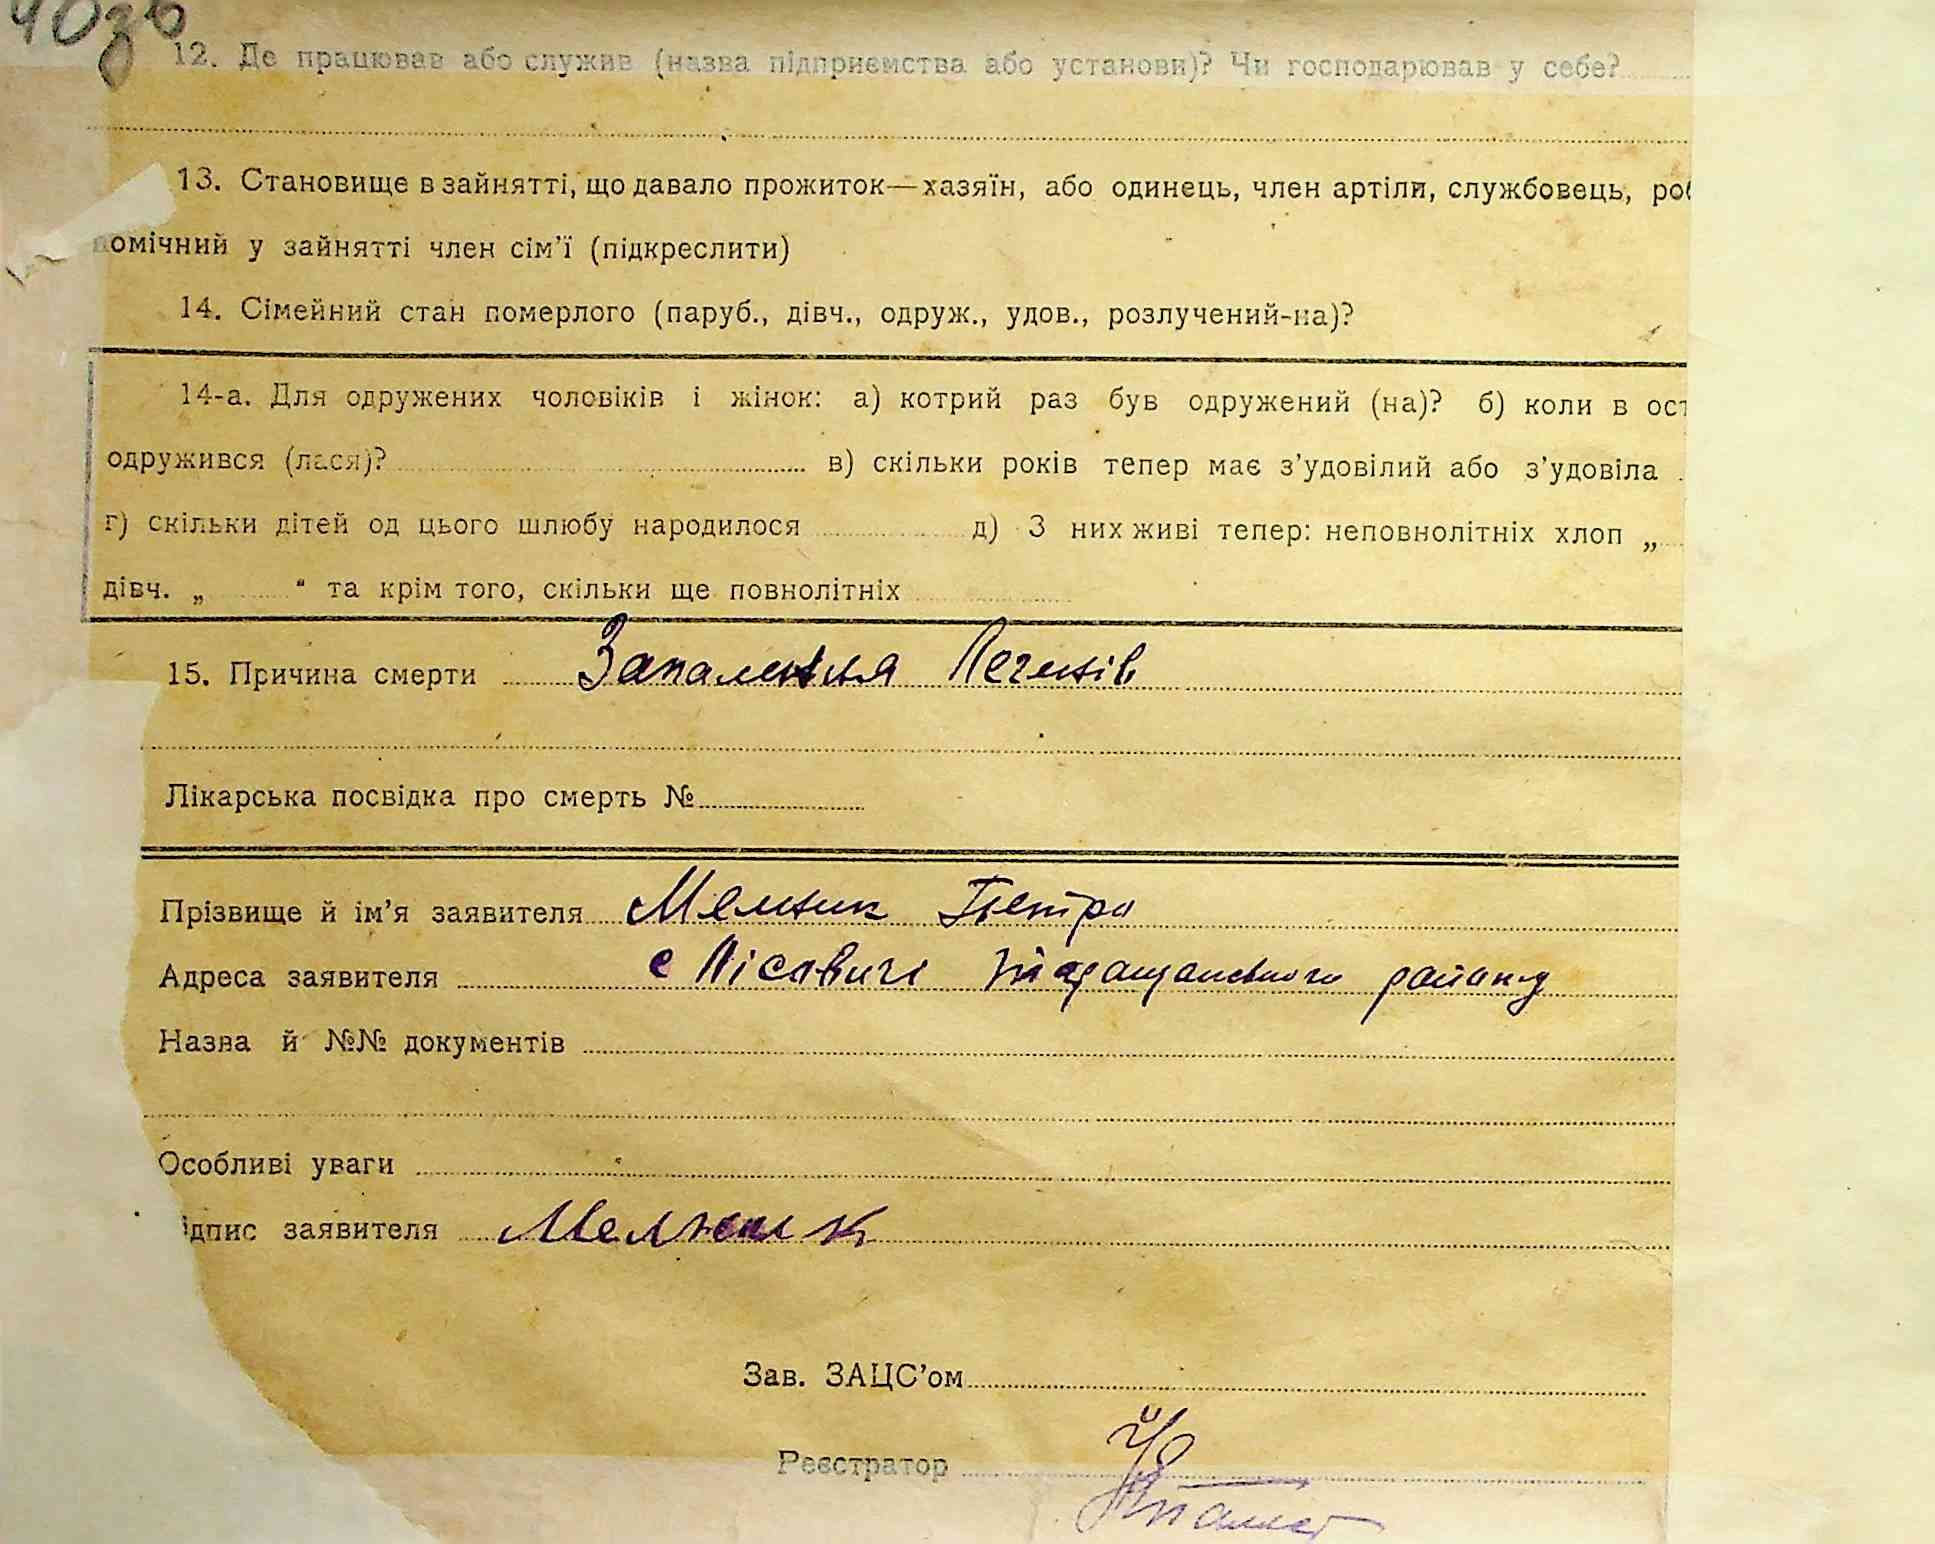 40зв
12. Де працював або служив (назва підприємства або установи)? Чи господарював у себе?
13. Становище в зайнятті, що давало прожиток—хазяїн, або одинець, член артіли, службовець, роб
помічний у зайнятті член сім'ї (підкреслити)
14. Сімейний стан померлого (паруб., дівч., одруж., удов., розлучений-на)?
14-а. Для одружених чоловіків і жінок: а) котрий раз був одружений (на)? б) коли в ост
одружився (лася)? в) скільки років тепер має з'удовілий або з'удовіла
г) скільки дітей од цього шлюбу народилося д) З них живі тепер: неповнолітніх хлоп „
дівч. „ “ та крім того, скільки ще повнолітніх
15. Причина смерти Запалення Легенів
Лікарська посвідка про смерть №
Прізвище й ім'я заявителя Мельник Петро
Адреса заявителя с Лісовичі Таращанського району
Назва й №№ документів
Особливі уваги
ідпис заявителя Мельник
Зав. ЗАЦС'ом
Реєстратор